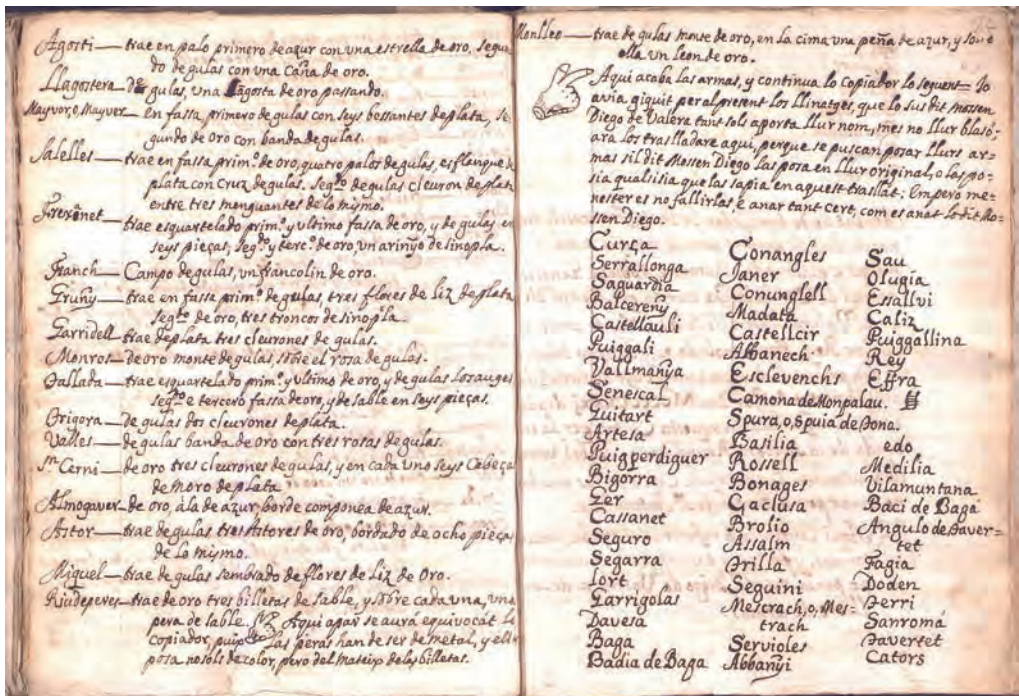 Agosti — trae en palo primero de azur con una estrella de oro, segun
do de gulas con vna Caña de oro.
Llagostera — de gulas, vna Lagosta de oro passando.
Mayvor, o, Mayver — en fassa, primero de gulas con seys bessantes de plata, se
gundo de Oro con banda de gulas.
Salelles — trae en fassa prim.º de oro, quatro palos de gulas, es flenque de
plata con Cruz de gulas. Seg.do de gulas cleuron de plata
entre tres menguantes de lo mismo.
Frexanet — trae esquartelado prim.º y ultimo fassa de oro, y de gulas en
seys pieças, seg.do y terc.º de oro vn arinyo de sinopla.
Franch — Campo de gulas, vn francolin de oro.
Gruñy — trae en fassa prim.º de gulas, tres flores de Liz de plata
seg.do de oro, tres troncos de sinopla.
Garridell — trae de plata tres cleurones de gulas.
Monros — de oro monte de gulas sobre el rosa de gulas.
Vallada — trae esquartelado prim.º y ultimo de oro, y de gulas
seg.do e tercero fassa de oro, y de sable en seys pieças.
Brigora — de gulas dos cleurones de plata.
Valles — de gulas banda de oro con tres rosas de gulas.
Sn Cerni — de oro tres cleurones de gulas, y en cada uno seys Cabeças
de moro de plata
Almogaver — de oro, ala de azur borde componea de azur.
Astor — trae de gulas tres Astores de oro, bordado de ocho pieças
de lo mismo.
Miquel — trae de gulas sembrado de flores de Liz de Oro.
Riudeperes — trae de oro tres billetas de sable, y sobre cada vna, vna
pera de sable. Aqui apar se aura equivocat lo
copiador, puix las peras han de ser de metal, y ell
posa nosols de color, pero del mateix de las billetas.
Monlleo — trae de gulas monte de oro, en la cima vna peña de azur, y sobre
ella vn leon de oro.
Aqui acaba las armas, y continua lo Copiador lo seguent = Io
avia giquit per al present los Llinatges, que lo sus dit mossen
Diego de Valera tant sols aporta llur nom, mes no llur blasó,
ara los traslladare aqui, perque se puscan posar llurs ar=
mas si l dit Mossen Diego las posa en llur original, o las po=
sia qualsisia que las sapia en aquest trasllat; Empero me=
nester es no fallirlas, e anar tant cert, com es anat lo dit Mo=
ssen Diego.
Curça
Serrallonga
Saguardia
Balcereny
Castellauli
Puiggali
Vallmanya
Senescal
Guitart
Artesa
Puigperdiguer
Bigorra
Ger
Cassanet
Seguro
Segarra
Iort
Garrigolas
Davesa
Baga
Badia de Baga
Conangles
Janer
Conunglell
Madata
Castellcir
Albanech
Esclevenchs
Camona de Monpalau.
Spura, o, Spuia de Dona.
Basilia
Rossell
Bonages
Gaclusa
Brolio
Assalm
Orilla
Seguini
Mescrach, o, Mes=
trach
Servioles
Abbanyi
Sau
Olugia
Essallvi
Caliz
Puiggallina
Rey
Effra
edo
Medilia
Vilamuntana
Baci de Baga
Angulo de Taver=
tet
Fagia
Doden
Ferri
Sanromá
Tavertet
Cators